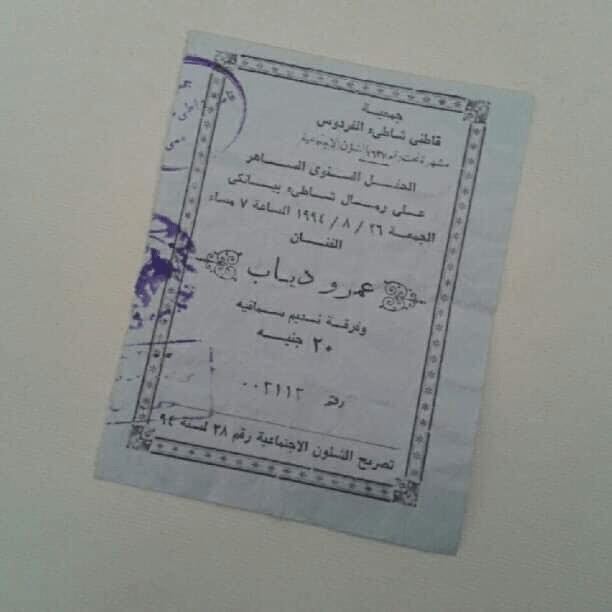 جمعية
قاطنى شاطىء الفردوس
مشهرة تحت رقم ١٦٣٧ الشئون الاجتماعية
الحفل السنوى الساهر
على رمال شاطىء بيانكى
الجمعة ٢٦ / ٨ / ١٩٩٤ الساعة ٧ مساء
الفنان
عمرو دياب
وفرقة نسيم بسماقيه
٢٠ جنيه
رقم ٠٠٢١١٢
تصريح الشئون الاجتماعية رقم ٣٨ لسنة ٩٤